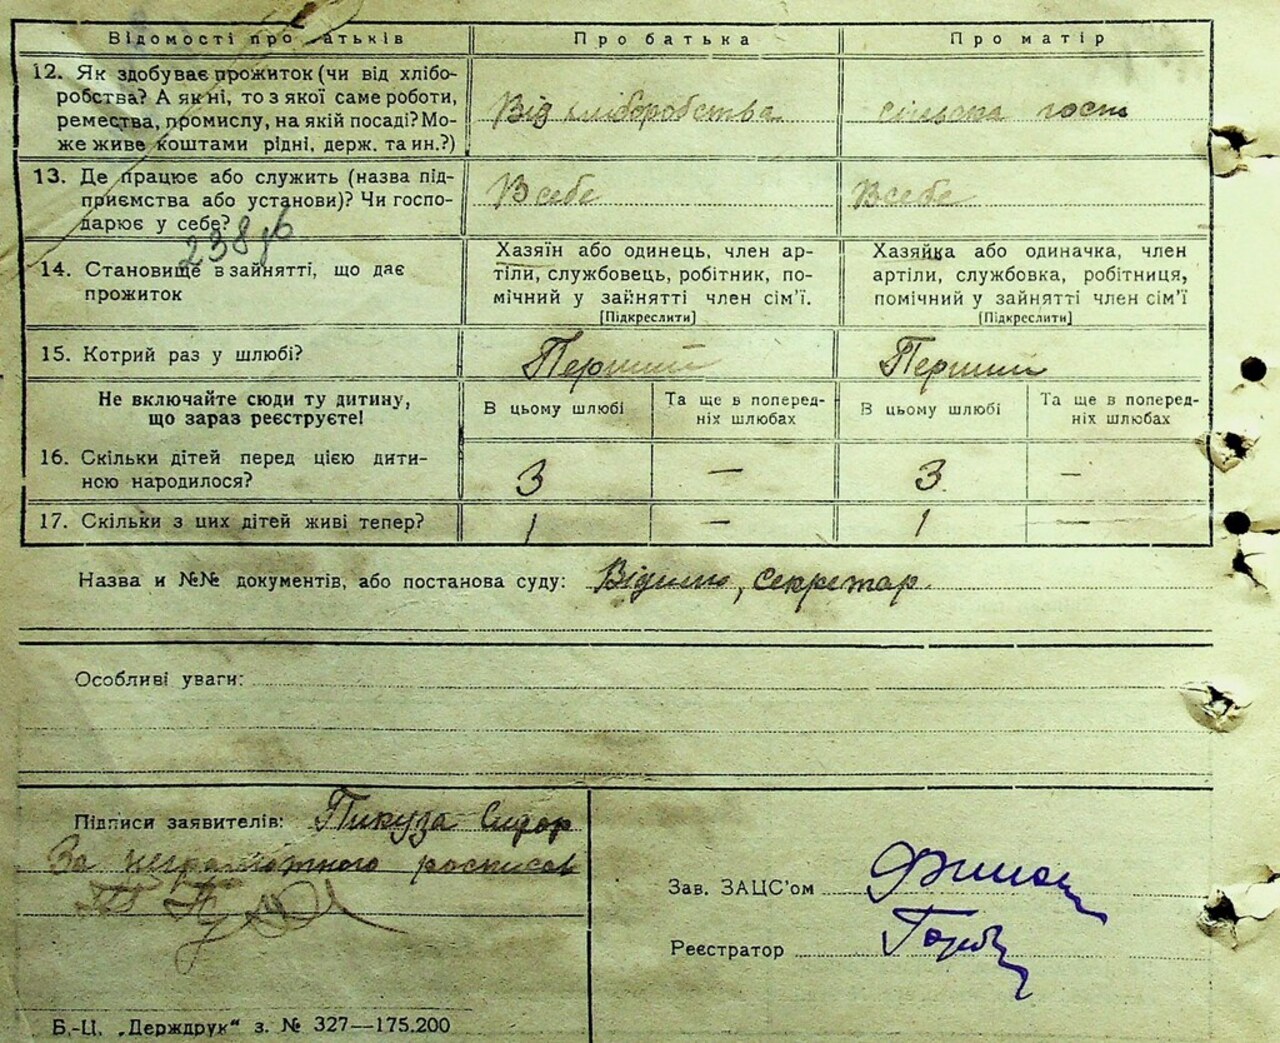 Відомості про батьків Про батька Про матір
12. Як здобуває прожиток (чи від хлібо-
робства? А як ні, то з якої саме роботи,
ремества, промислу, на якій посаді? Мо-
же живе коштами рідні, держ. та ин.?)
Від хліборобства сільська госп
13. Де працює або служить (назва під-
приємства або установи)? Чи госпо-
дарює у себе?
В себе В себе
238
14. Становище в зайнятті, що дає
прожиток
Хазяїн або одинець, член ар-
тіли, службовець, робітник, по-
мічний у зайнятті член сім’ї.
[Підкреслити]
Хазяйка або одиначка, член
артіли, службовка, робітниця,
помічний у зайнятті член сім’ї
[Підкреслити]
15. Котрий раз у шлюбі? Перший Перший
Не включайте сюди ту дитину,
що зараз реєструєте!
В цьому шлюбі
Та ще в поперед-
ніх шлюбах
В цьому шлюбі
Та ще в поперед-
ніх шлюбах
16. Скільки дітей перед цією дити-
ною народилося?
3 — 3 —
17. Скільки з цих дітей живі тепер? 1 — 1 —
Назва и №№ документів, або постанова суду: Відомо, секретар.
Особливі уваги:
Підписи заявителів: Пикуза Сидор
За неграмотного росписав
Зав. ЗАЦС’ом
Реєстратор
Б.-Ц. „Держдрук“ з. № 327—175.200